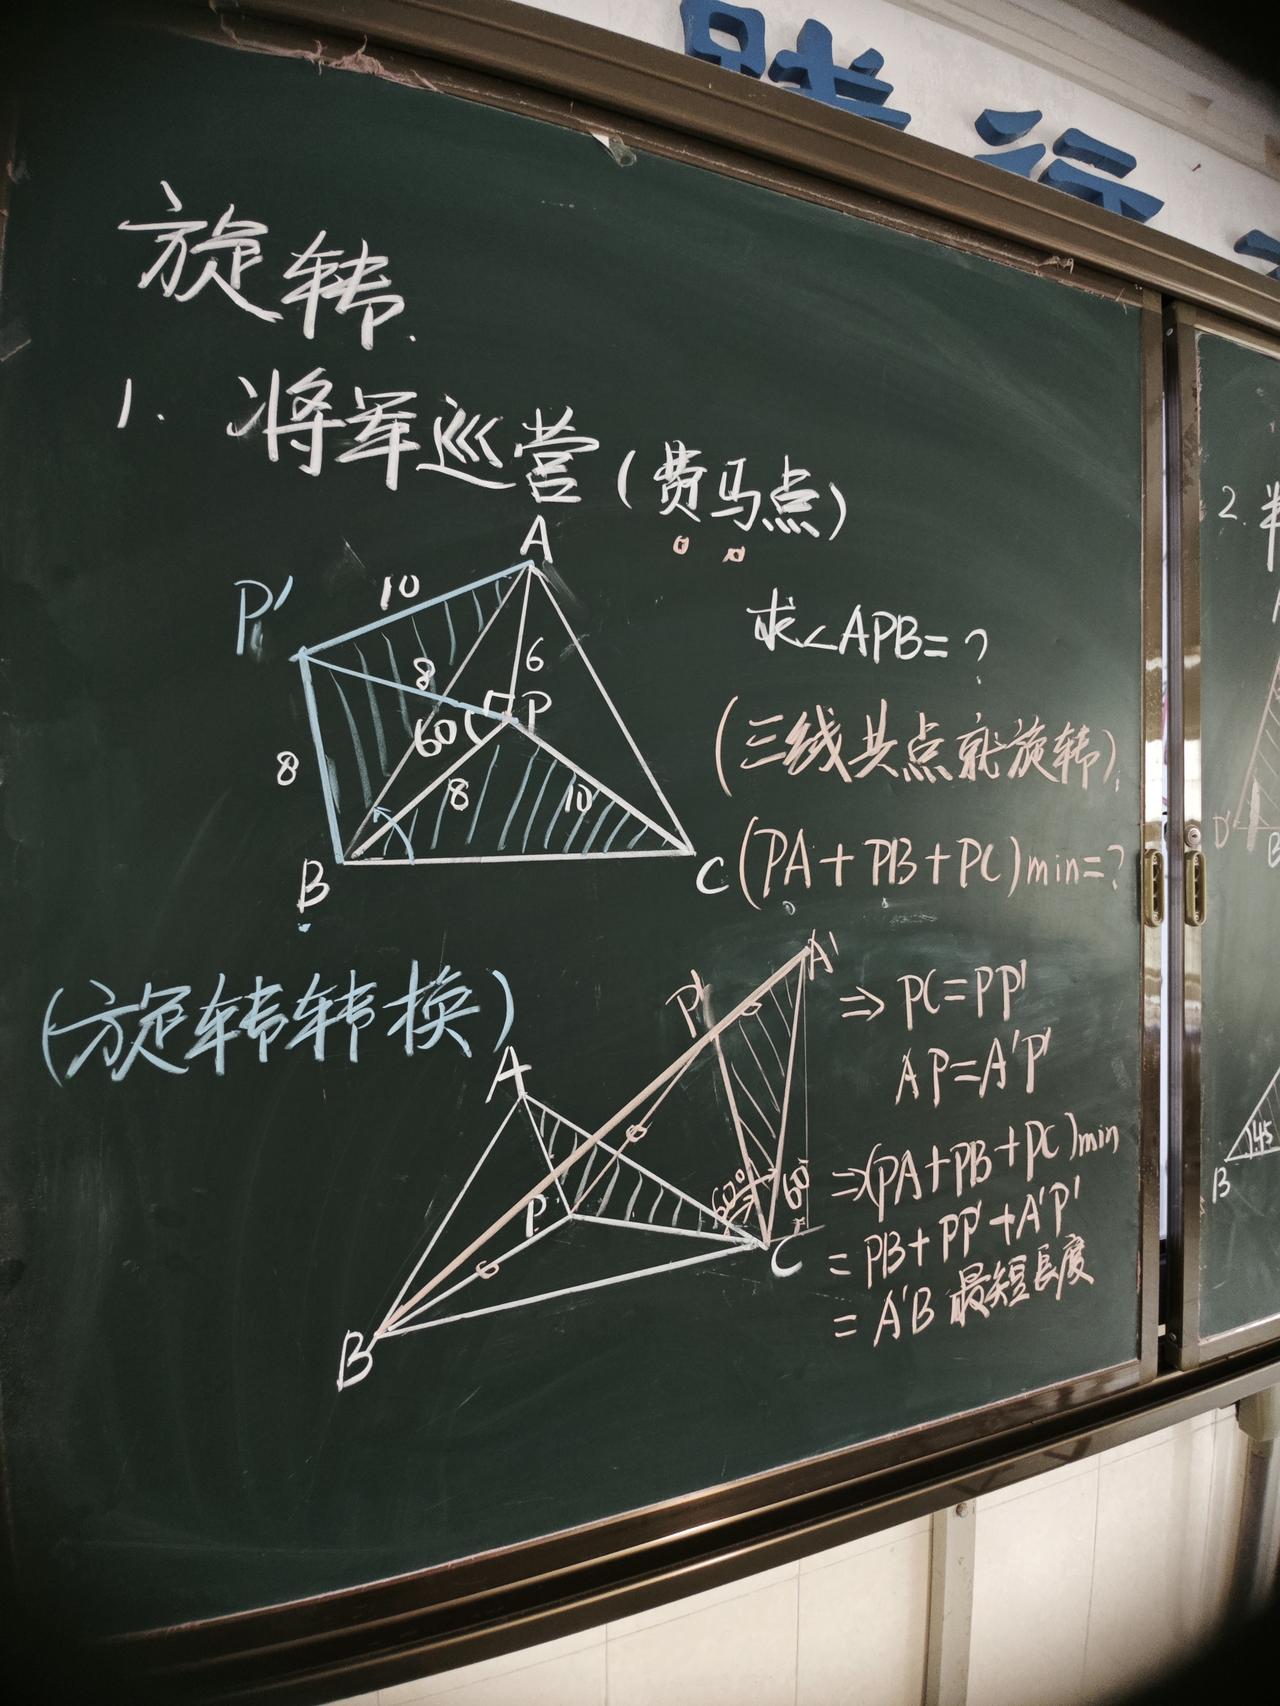 践行
旋转.
1. 将军巡营(费马点)
A
P'
10
8
6
P
60
8
8
10
B
C
求∠APB=?
(三线共点就旋转)
(PA+PB+PC)min=?
(旋转转换)
A
P'
A'
P
60°
60
B
C
⇒ PC=PP'
AP=A'P'
⇒(PA+PB+PC)min
= PB+PP'+A'P'
= A'B 最短長度
2.
D'
B
45